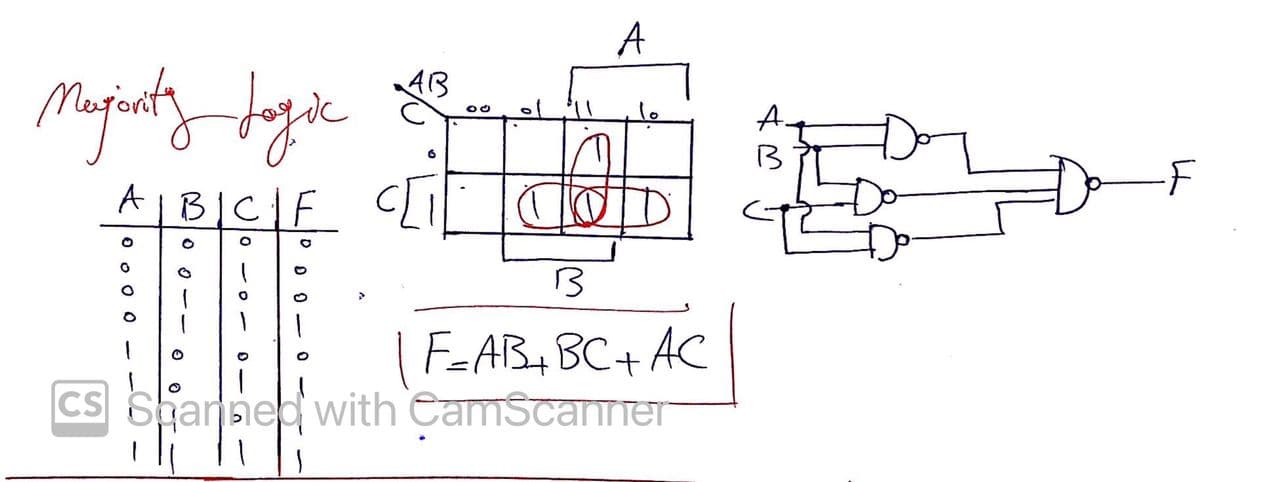 Majority Logic
A B C F
0 0 0 0
0 0 1 0
0 1 0 0
0 1 1 1
1 0 0 0
1 0 1 1
1 1 0 1
1 1 1 1
A
AB
C
00 01 11 10
0
1
C 1
1 1 1
B
F=AB+BC+AC
A
B
C
F
CS Scanned with CamScanner